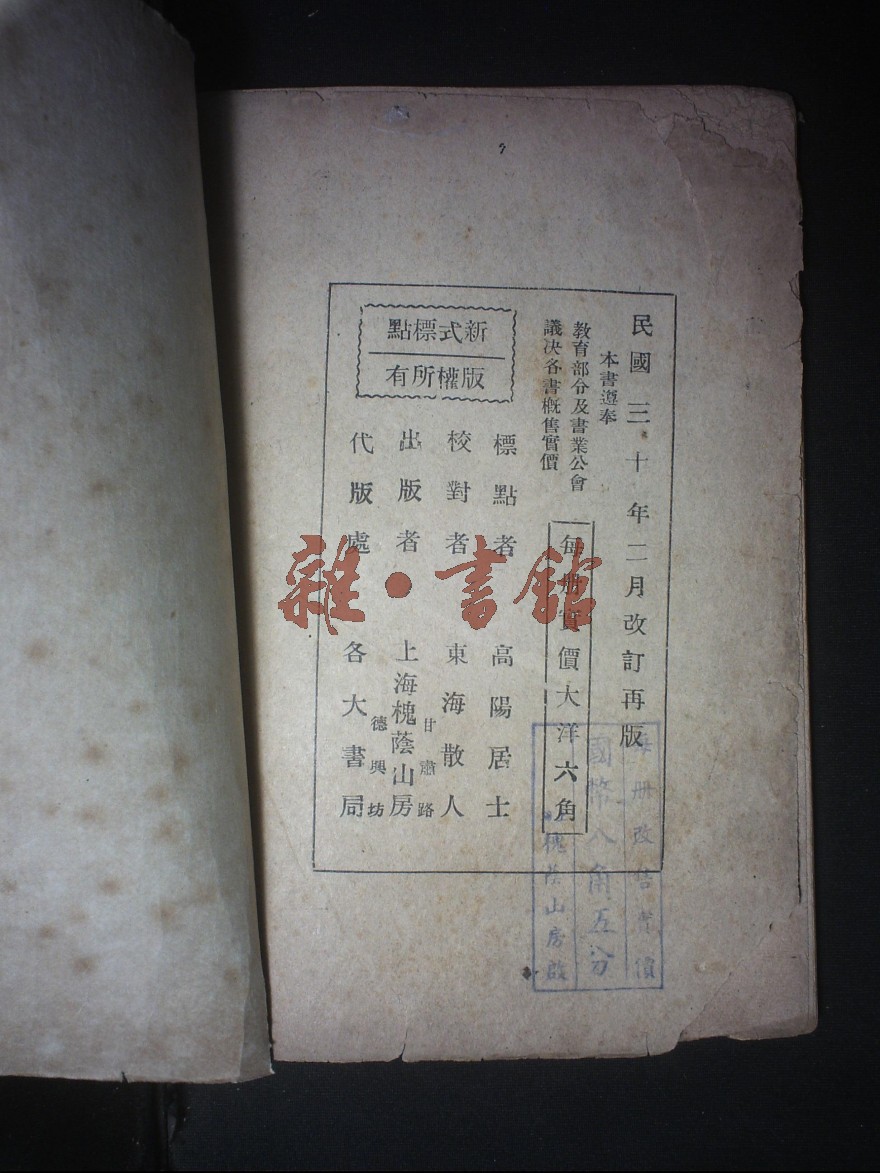 民國三十年二月改訂再版
本書遵奉
教育部分及書業公會
議决各書概售實價
每册實價大洋六角
新式標點
版權所有
標點者 高陽居士
校對者 東海散人
出版者 上海槐蔭山房
甘肅路
德興坊
代版處 各大書局
每册改售實價
國幣八角五分
槐蔭山房啟
雜·書館